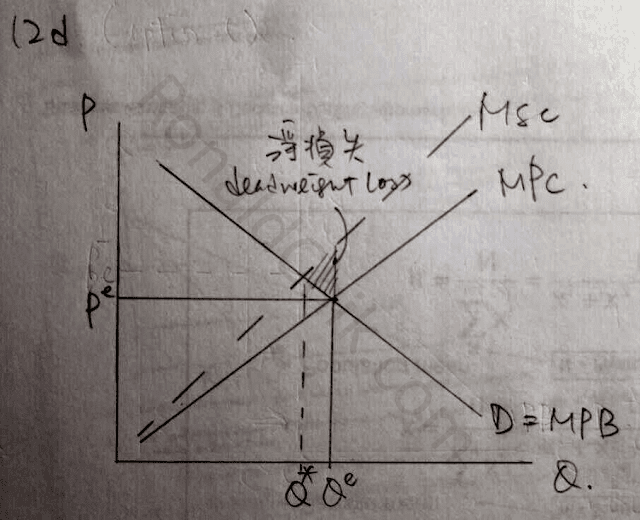 12d
P
MSC
淨損失
deadweight loss
MPC.
Pe
D = MPB
Q* Qe
Q.